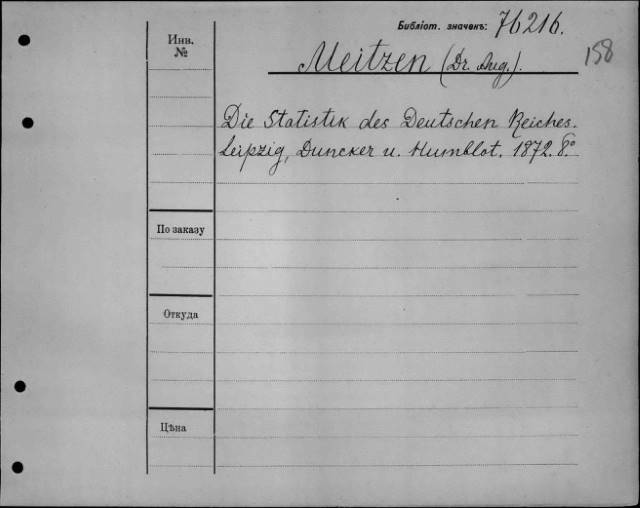 Библіот. значенъ: 76216.
158
Инв.
№
Meitzen (Dr. Aug.).
Die Statistik des Deutschen Reiches.
Leipzig, Duncker u. Humblot. 1872. 8º
По заказу
Откуда
Цѣна